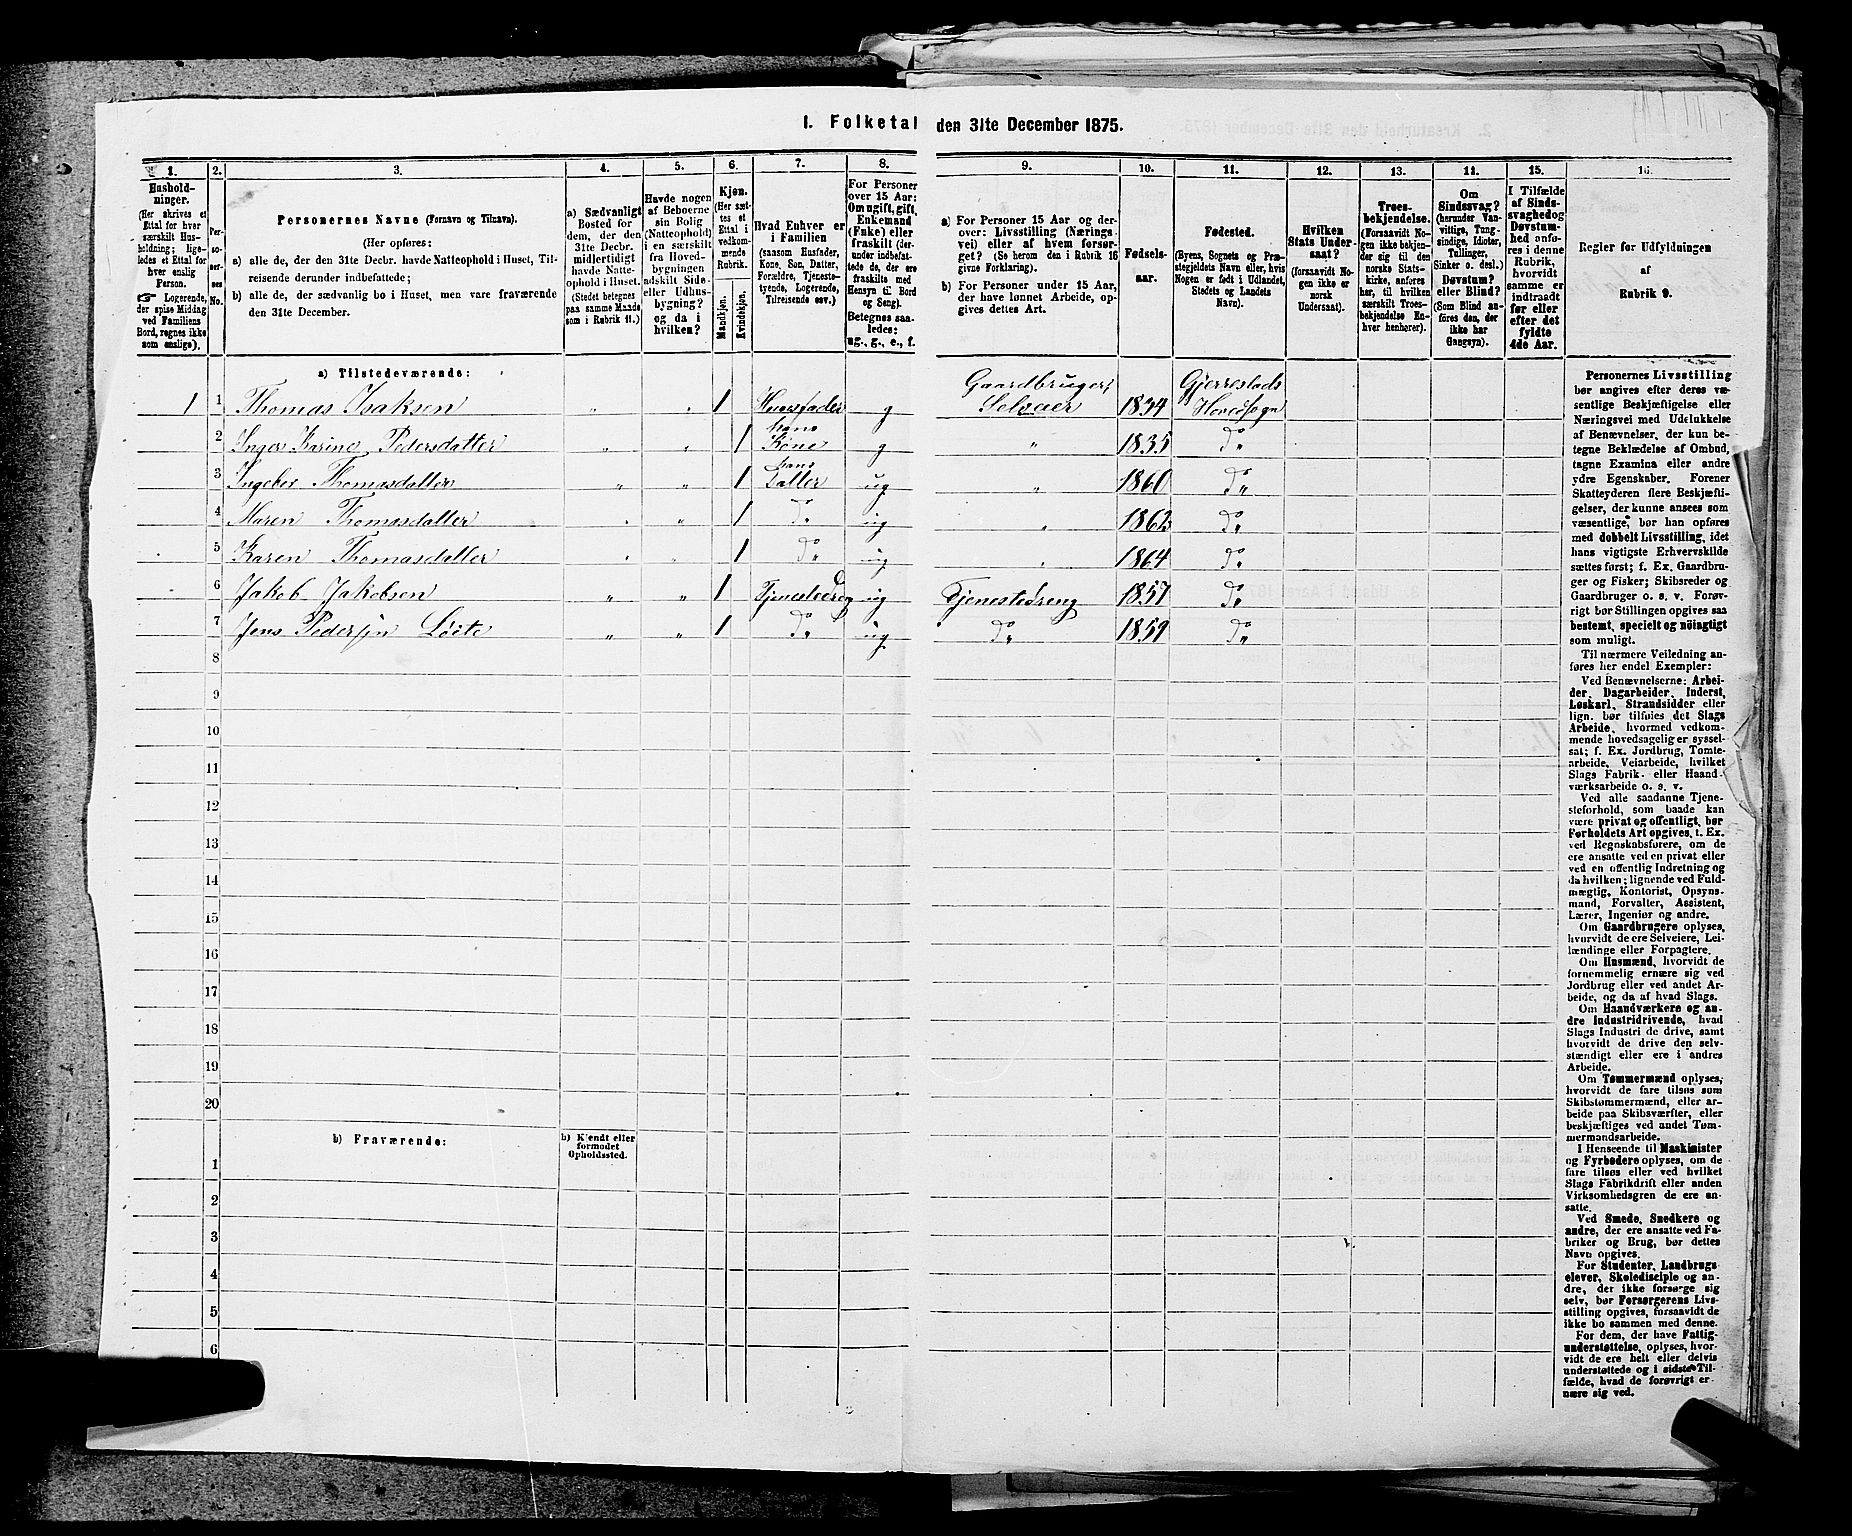 I. Folketal den 31te December 1875.
1. 2. 3. 4. 5. 6. 7. 8. 9. 10. 11. 12. 13. 14. 15. 16.
Hushold-
ninger.
(Her skrives et
Ettal for hver
særskilt Hus-
holdning; lige-
ledes et Ettal for
hver enslig
Person.
☞ Logerende,
der spise Middag
ved Familiens
Bord, regnes ikke
som enslige).
Per-
so-
ner-
nes
No.
Personernes Navne (Fornavn og Tilnavn).
(Her opføres:
a) alle de, der den 31te Decbr. havde Natteophold i Huset, Til-
reisende derunder indbefattede;
b) alle de, der sædvanlig bo i Huset, men vare fraværende
den 31te December.
a) Sædvanligt
Bosted for
dem, der den
31te Decbr.
midlertidigt
havde Natte-
ophold i Huset.
(Stedet betegnes
paa samme Maade
som i Rubrik 11.)
Havde nogen
af Beboerne
sin Bolig
(Natteophold)
i en særskilt
fra Hoved-
bygningen
adskilt Side-
eller Udhus-
bygning?
og da i
hvilken?
Kjøn.
(Her sæt-
tes et
Ettal i
vedkom-
mende
Rubrik.
Mandkjøn.
Kvindekjøn.
Hvad Enhver er
i Familien
(saasom Husfader,
Kone, Søn, Datter,
Forældre, Tjeneste-
tyende, Logerende,
Tilreisende osv.)
For Personer
over 15 Aar:
Om ugift, gift,
Enkemand
(Enke) eller
fraskilt (der-
under indbefat-
tede de, der ere
fraskilte med
Hensyn til Bord
og Seng).
Betegnes saa-
ledes:
ug., g., e., f.
a) For Personer 15 Aar og der-
over: Livsstilling (Nærings-
vei) eller af hvem forsør-
get? (Se herom den i Rubrik 16
givne Forklaring).
b) For Personer under 15 Aar,
der have lønnet Arbeide, op-
gives dettes Art.
Fødsels-
aar.
Fødested.
(Byens, Sognets og Præ-
stegjeldets Navn eller, hvis
Nogen er født i Udlandet,
Stedets og Landets
Navn).
Hvilken
Stats Under-
saat?
(forsaavidt No-
gen ikke er
norsk
Undersaat).
Troes-
bekjendelse.
(Forsaavidt No-
gen ikke bekjen-
der sig til den
norske Stats-
kirke, anføres
her, til hvilken
særskilt Troes-
bekjendelse En-
hver henhører).
Om
Sindssvag?
(herunder Van-
vittige, Tung-
sindige, Idioter,
Tullinger,
Sinker o. desl.)
Døvstum?
eller Blind?
(Som Blind an-
føres den, der
ikke har
Gangsyn).
I Tilfælde
af Sinds-
svaghed og
Døvstum-
hed anfø-
res i denne
Rubrik,
hvorvidt
samme er
indtraadt
før eller
efter det
fyldte
4de Aar.
Regler for Udfyldningen
af
Rubrik 9.
a) Tilstedeværende:
1 1 Thomas Isaksen " " 1 Huusfader g Gaardbruger, Selveier 1834 Gjerrestads Hovedsogn
2 Inger Karine Pedersdatter " " 1 hans Kone g " 1835 Do "
3 Ingebor Thomasdatter " " 1 hans Datter ug " 1860 Do "
4 Maren Thomasdatter " " 1 Do " ug " 1862 Do "
5 Karen Thomasdatter " " 1 Do " ug " 1864 Do "
6 Jakob Jakobsen " " 1 Tjenestedreng ug Tjenestedreng 1857 Do "
7 Jens Pedersen Løite " " 1 Do " ug Do " 1859 Do "
8
9
10
11
12
13
14
15
16
17
18
19
20
b) Fraværende:
b) Kjendt eller
formodet
Opholdssted.
1
2
3
4
5
6
Personernes Livsstilling
bør angives efter deres væ-
sentlige Beskjæftigelse eller
Næringsvei med Udelukkelse
af Benævnelser, der kun be-
tegne Beklædelse af Ombud,
tagne Examina eller andre
ydre Egenskaber. Forener
Skatteyderen flere Beskjæfti-
gelser, der kunne ansees som
væsentlige, bør han opføres
med dobbelt Livsstilling, idet
hans vigtigste Erhvervskilde
sættes først; f. Ex. Gaardbru-
ger og Fisker; Skibsreder og
Gaardbruger o. s. v. Forøv-
rigt bør Stillingen opgives saa
bestemt, specielt og nøiagtigt
som muligt.
Til nærmere Veiledning an-
føres her endel Exempler:
Ved Benævnelserne: Arbei-
der, Dagarbeider, Inderst,
Løskarl, Strandsidder eller
lign. bør tilføies det Slags
Arbeide, hvormed vedkom-
mende hovedsagelig er syssel-
sat; f. Ex. Jordbrug, Tomte-
arbeide, Veiarbeide, hvilket
Slags Fabrik- eller Haand-
værksarbeide o. s. v.
Ved alle saadanne Tjene-
steforhold, som baade kan
være privat og offentligt, bør
Forholdets Art opgives, t. Ex.
ved Regnskabsførere, om de
ere ansatte ved en privat eller
ved en offentlig Indretning og
da hvilken; lignende ved Fuld-
mægtig, Kontorist, Opsyns-
mand, Forvalter, Assistent,
Lærer, Ingeniør og andre.
Om Gaardbrugere oplyses,
hvorvidt de ere Selveiere, Lei-
lændinge eller Forpagtere.
Om Husmænd, hvorvidt de
fornemmelig ernære sig ved
Jordbrug eller ved andet Ar-
beide, og da af hvad Slags.
Om Haandværkere og an-
dre Industridrivende, hvad
Slags Industri de drive, samt
hvorvidt de drive den selv-
stændigt eller ere i andres
Arbeide.
Om Tømmermænd oplyses,
hvorvidt de fare tilsøs som
Skibstømmermænd, eller ar-
beide paa Skibsværfter, eller
beskjæftiges ved andet Tøm-
mermandsarbeide.
I Henseende til Maskinister
og Fyrbødere oplyses, om de
fare tilsøs eller ved hvilket
Slags Fabrikdrift eller anden
Virksomhedsgren de ere an-
satte.
Ved Smede, Snedkere og
andre, der ere ansatte ved Fa-
briker og Brug, bør dettes
Navn opgives.
For Studenter, Landbrugs-
elever, Skoledisciple og an-
dre, der ikke forsørge sig
selv, bør Forsørgerens Livs-
stilling opgives, forsaavidt de
ikke bo sammen med denne.
For dem, der have Fattig-
understøttelse, oplyses, hvor-
vidt de ere helt eller delvis
understøttede og i sidste Til-
fælde, hvad de forøvrigt er-
nære sig ved.